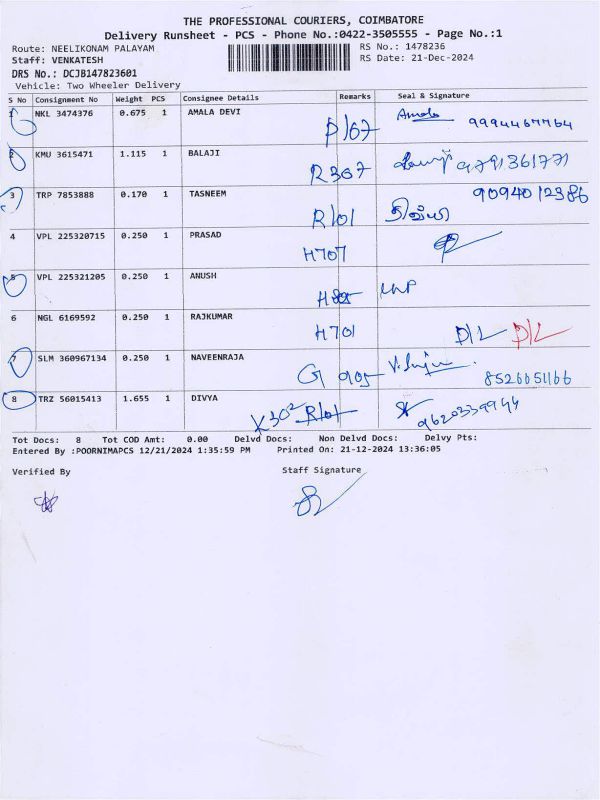 THE PROFESSIONAL COURIERS, COIMBATORE
Delivery Runsheet - PCS - Phone No.:0422-3505555 - Page No.:1
Route: NEELIKONAM PALAYAM RS No.: 1478236
Staff: VENKATESH RS Date: 21-Dec-2024
DRS No.: DCJB147823601
Vehicle: Two Wheeler Delivery
S No Consignment No Weight PCS Consignee Details Remarks Seal & Signature
1 NKL 3474376 0.675 1 AMALA DEVI P167 Amala 9994467764
2 KMU 3615471 1.115 1 BALAJI R307 9791361771
3 TRP 7853888 0.170 1 TASNEEM R101 திவ்யா 9094012386
4 VPL 225320715 0.250 1 PRASAD H707
5 VPL 225321205 0.250 1 ANUSH
6 NGL 6169592 0.250 1 RAJKUMAR H701 D/L D/L
7 SLM 360967134 0.250 1 NAVEENRAJA G 905 8526051166
8 TRZ 56015413 1.655 1 DIVYA K302 R101 9620339994
Tot Docs: 8 Tot COD Amt: 0.00 Delvd Docs: Non Delvd Docs: Delvy Pts:
Entered By :POORNIMAPCS 12/21/2024 1:35:59 PM Printed On: 21-12-2024 13:36:05
Verified By Staff Signature